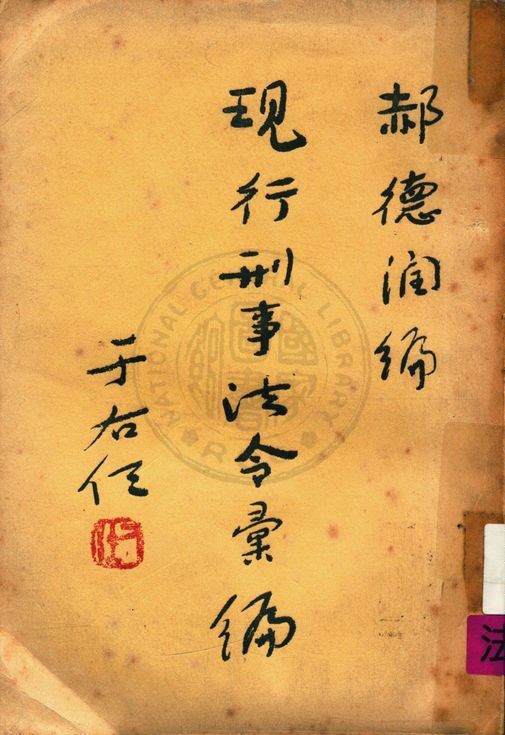 郝德润编
現行刑事法令彙編
于右任
NATIONAL CENTRAL LIBRARY
法